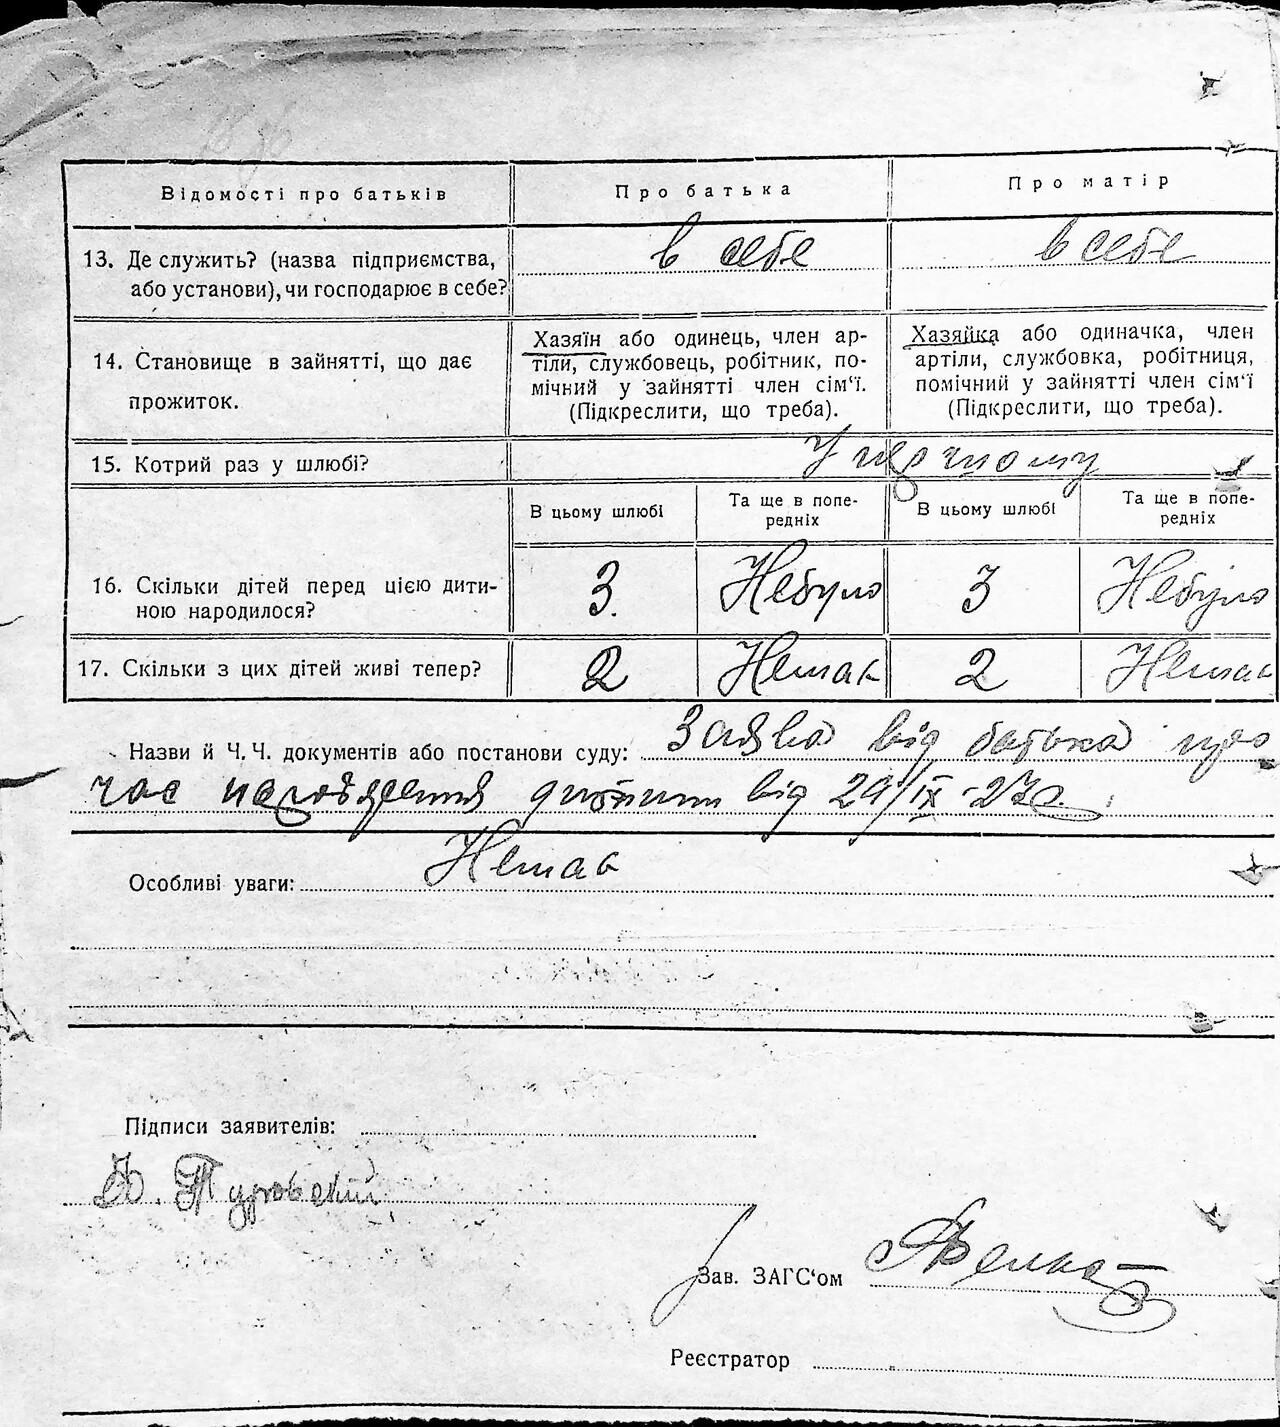 Відомості про батьків Про батька Про матір
13. Де служить? (назва підприємства, або установи), чи господарює в себе? в себе в себе
14. Становище в зайнятті, що дає прожиток.
Хазяїн або одинець, член ар-
тіли, службовець, робітник, по-
мічний у зайнятті член сім‘ї.
(Підкреслити, що треба).
Хазяйка або одиначка, член
артіли, службовка, робітниця,
помічний у зайнятті член сім‘ї
(Підкреслити, що треба).
15. Котрий раз у шлюбі? У первому
В цьому шлюбі Та ще в попе-редніх В цьому шлюбі Та ще в попе-редніх
16. Скільки дітей перед цією дити-
ною народилося? 3. Небуло 3 Небуло
17. Скільки з цих дітей живі тепер? 2 Немає 2 Немає
Назви й Ч. Ч. документів або постанови суду: Заява від батька про
час народження дитини від 29/IX-27р.
Особливі уваги: Немає
Підписи заявителів:
Туровский
Зав. ЗАГС‘ом
Реєстратор